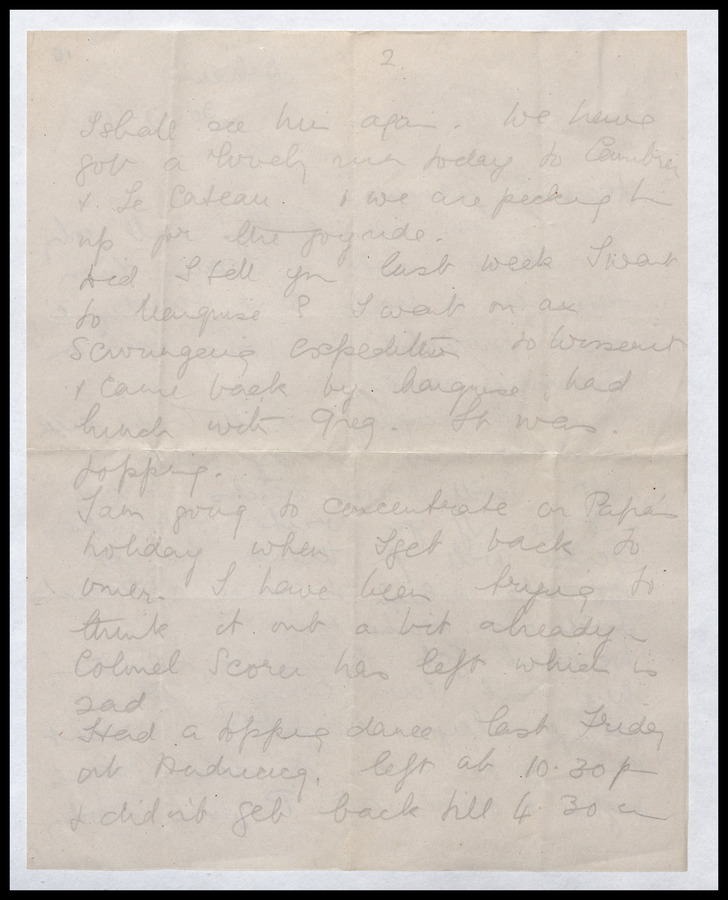 2.
I shall see him again. We have
got a lovely run today to Cambrai
& Le Cateau. & we are picking him
up for the joyride.
Did I tell you last week I went
to Marquise? I went on a
Scroungeing expedition to Wissant
& came back by Marquise, had
lunch with Greg. It was
topping.
I am going to concentrate on Papa's
holiday when I get back to
omer. I have been trying to
think it out a bit already.
Colonel Scorer has left which is
sad
Had a topping dance last Friday
at Audruicq, left at 10.30 p
& didn't get back till 4.30 am